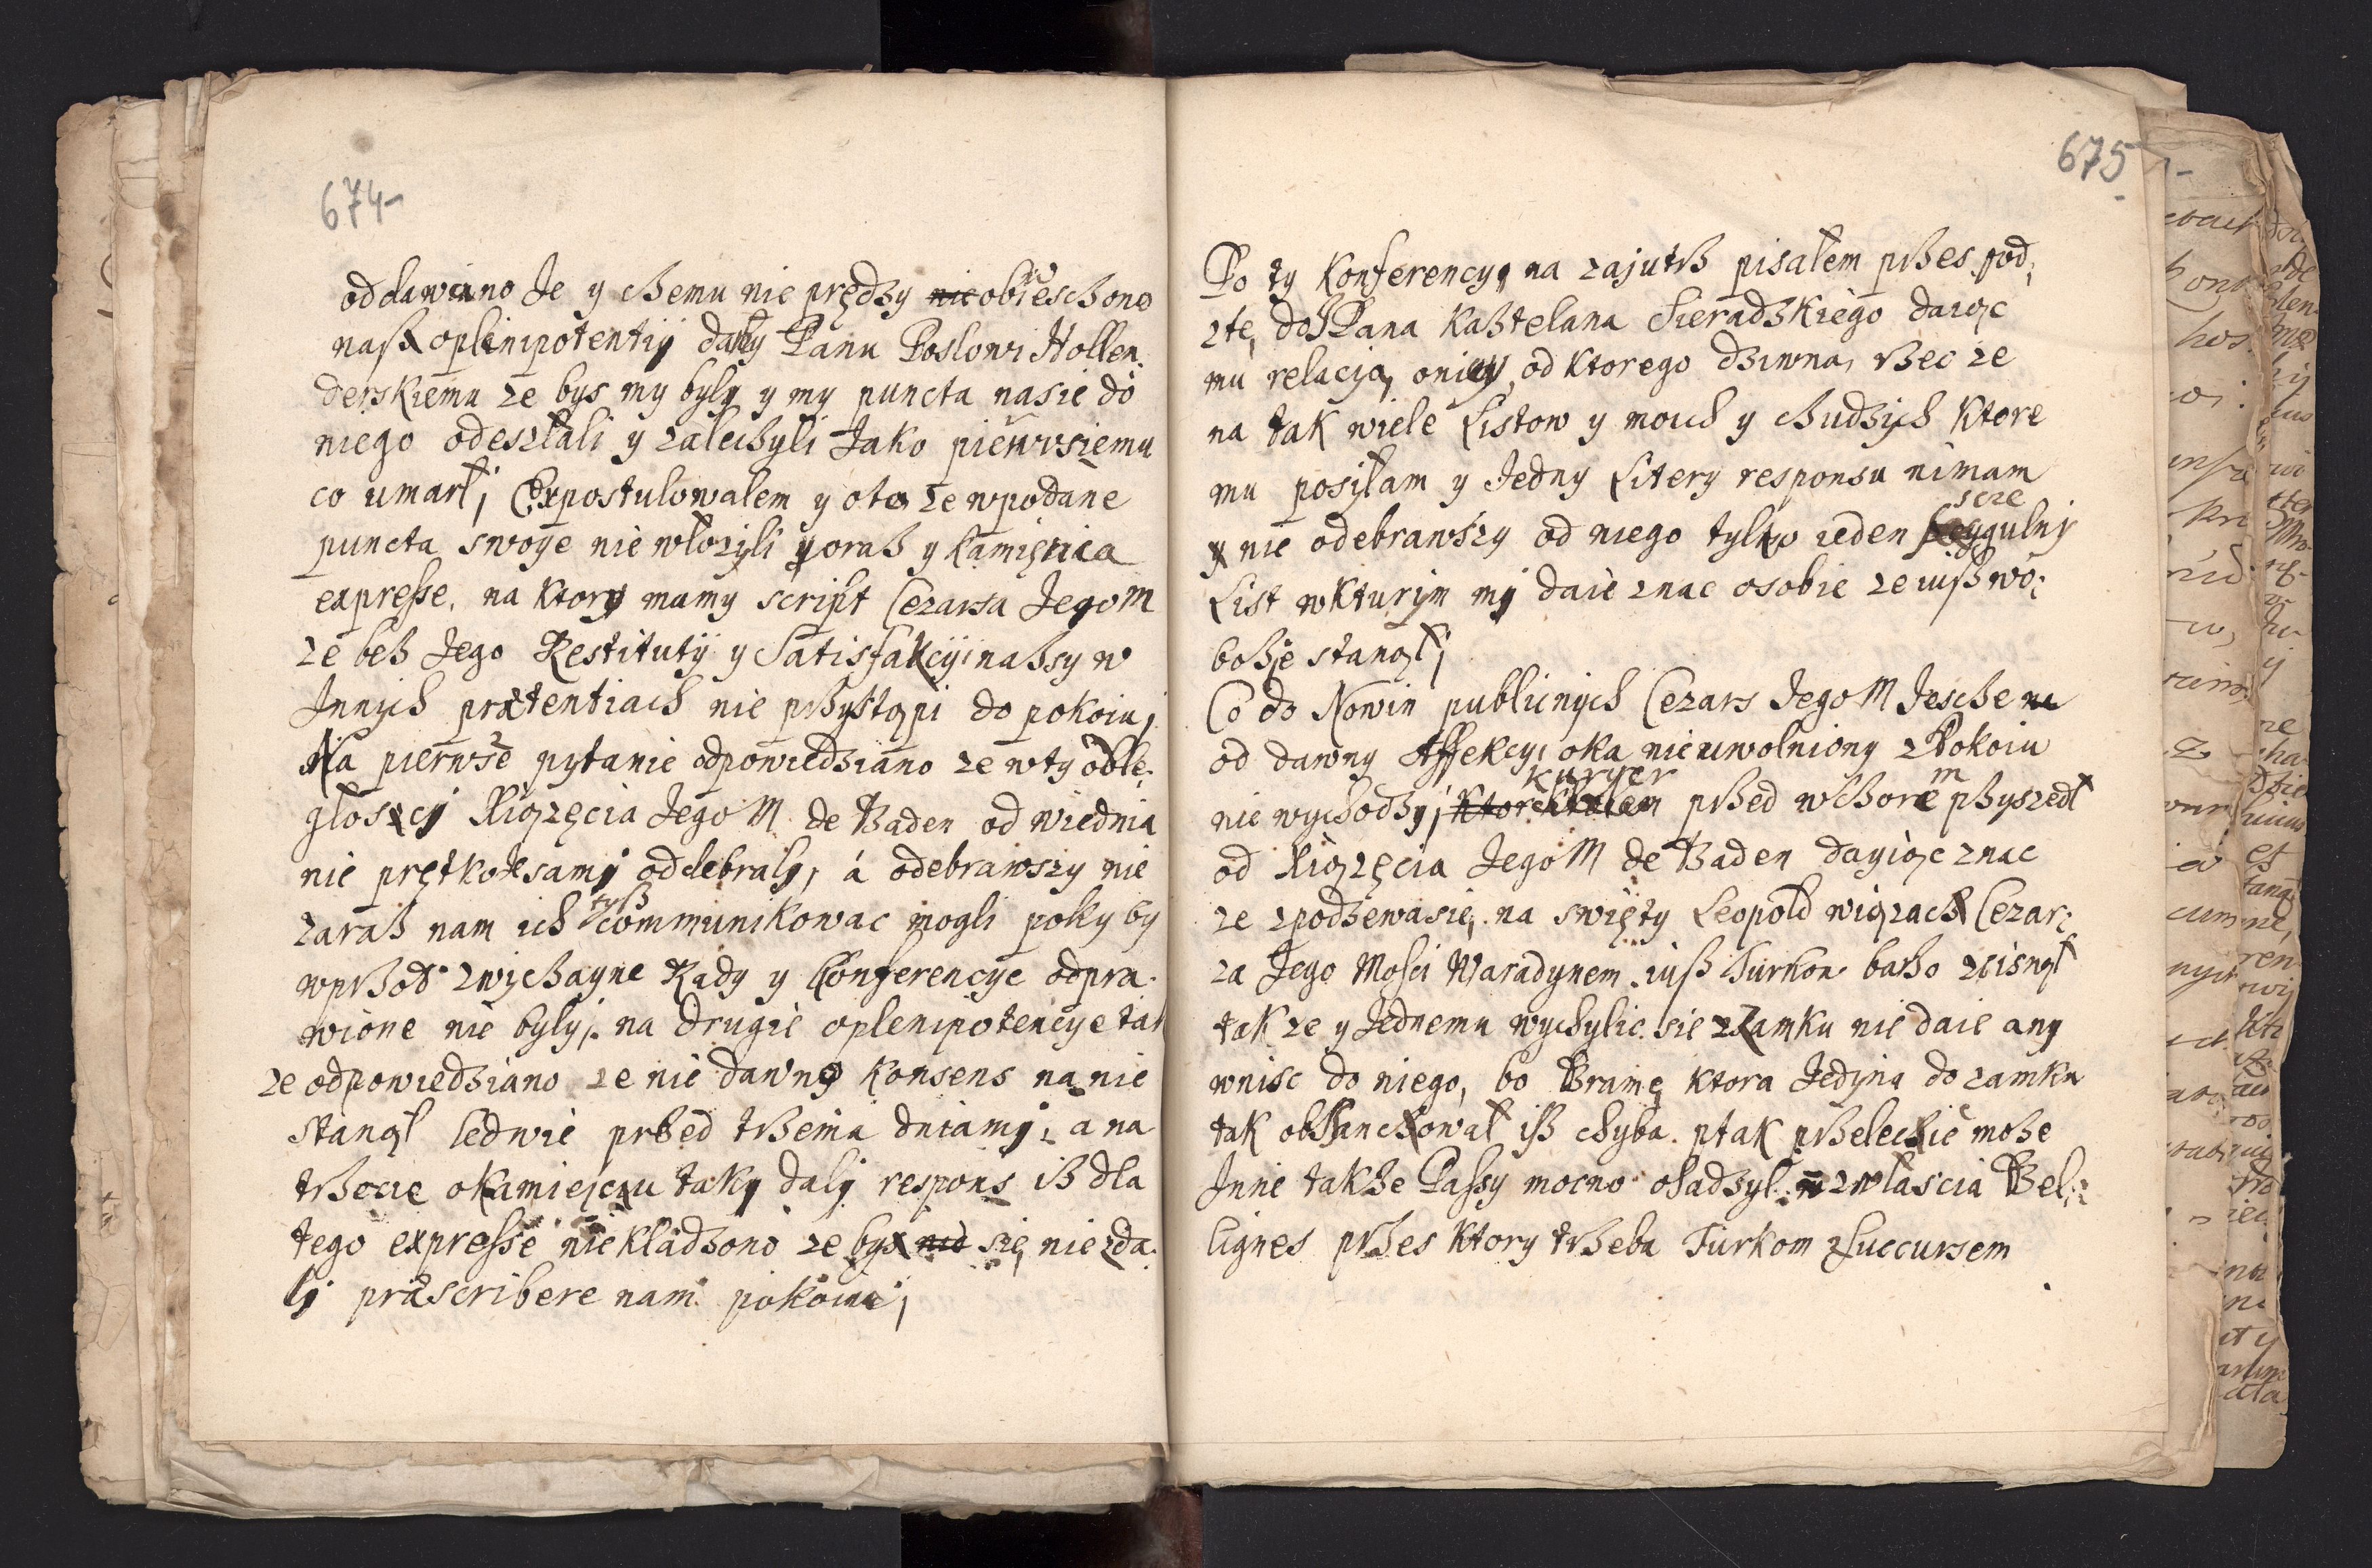 674
oddawiano Je y cßemu nie prędzy obwieschono
nasz oplenipotentij daly Panu Poslowi Hollen
derskiemu ze bys my byly y my puncta nasie do
niego odeszłali y zalecßyli Jako pierwsiemu
co umarł; Expostulowalem y oto ze wpodane
puncta swoye nie włozyli zoraß y Kamięnica
expresse, na ktory mamy script Cezarsa JegoM
ze beß Jego Restituty y Satisfakcyi naßsy w
Innych prætentiach nie prßystąpi do pokoiu;
Na pierwse pytanie odpowiedziano ze wty odle
głoscj Xiązęcia JegoM de Baden od wiednia
nie prętko samj oddebraly, á odebrawszy nie
zaraß nam ich tyß communikowac mogli poky by
wprßod zwycßayne Rady y Conferencye odpra
wione nie byly; na drugie oplenipotencye tak
ze odpowiedziano ze nie dawno Konsens na nie
stanął ledwie prßed trßema dniamj; a na
trßecie okamiejcu taky daly respons iß dla
tego expresse nie kładzono ze by nie się nie zda
lj præscribere nam pokoiu;
675
Po ty Konferency, na zajutrß pisałem prßes pod,
ztę, do JPana Kaßtelana Sieradzkiego daiąc
mu relacją, oniey, od ktorego dziwna, rßec ze
na tak wiele Listow y moich y cßudzych ktore
mu posyłam y Jedny Litery responsu nimam
y nie odebrawszy od niego tylko ieden sczegulny
List wkturym mj daie znac osobie ze iuß wo;
boßje stanął;
Co do Nowin publicnych Cezars JegoM Jesche
od dawny Affekcy, oka nie uwolniony z Pokoiu
nie wychodzy; kuryer prßed wcßorem pßyszedł
od Xiązęcia JegoM de Baden dayiąc znac
ze zpodzewasię, na swięty Leopold wiązach Cezar;
za Jego Mosci Waradynem, iuß Turkow barßo scisnął
tak ze y Jednemu wychylic sie zZamku nie daie any
wnisc do niego, bo Bramę ktora Jedyna do zamku
tak obßanchował iß chyba ptak prßeleciec moße
Inne takße Passy mocno osadzył zwlascia Bel;
lignes prßes ktory trßeba Turkom zsuccursem